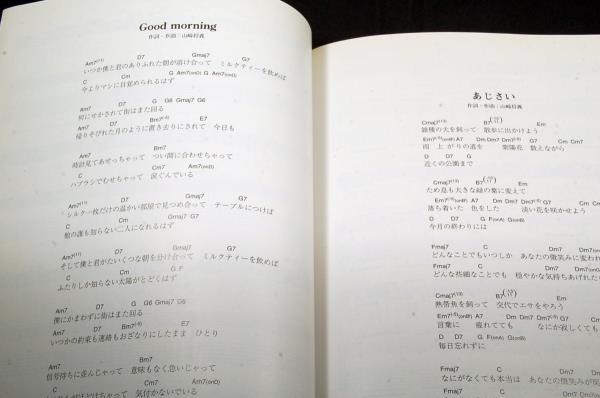 Good morning
作詞・作曲：山崎将義
Am7(11) D7 Gmaj7 G7
いつか僕と君のありふれた朝が溶け合って ミルクティーを飲めば
C Cm G Am7(onD) G Am7(onD)
今よりマシに目覚められるはず
Am7 D7 G G6 Gmaj7 G6
何にせかされて街はまた回る
Am7 D7 Bm7(-5) E7
帰りそびれた月のように置き去りにされて 今日も
Am7 Bm7
時計見てあせっちゃって つい間に合わせちゃって
C Cm7 D7
ハブラシでむせちゃって 涙ぐんでいる
Am7(11) D7 Gmaj7 G7
シルク一枚だけの温かい部屋で見つめ合って テーブルにつけば
C Cm
他の誰も知らない二人になれるはず
Am7(11) D7 Gmaj7 G7
そして僕と君がたいくつな朝を分け合って ミルクティーを飲めば
C Cm G F
ふたりしか知らない太陽がとどくはず
Am7 D7 G G6 Gmaj7 G6
僕にかまわずに街はまた回る
Am7 D7 Bm7(-5) E7
いつかの約束も連絡もおざなりにしたまま ひとり
Am7 Bm7
信号待ちに並んじゃって 意味もなく急いじゃって
C Cm7 Am7(onD)
って 気付かないでいる
あじさい
作詞・作曲：山崎将義
Cmaj7(13) B7(??) Em
雑種の犬を飼って 散歩に出かけよう
Em7(-5)(onB♭) A7 Dm Dm7 Dm7(-5) G7 Cm Cm7
雨上がりの道を 紫陽花 数えながら
D D7 G
近くの公園まで
Cmaj7(13) B7(??) Em
ため息も大きな緑の葉に変えて
Em7(-5)(onB♭) A7 Dm Dm7 Dm7(-5) G7
落ち着いた 色をした 淡い花を咲かせよう
D D7 G F(onA) G(onB)
今月の終わりには
Fmaj7 C Dm7 Dm7(onG)
どんなことでもいつしか あなたの微笑みに変われ
Fmaj7 C Dm7
どんな些細なことでも 穏やかな気持ちあげれた
Cmaj7(13) B7(??) Em
熱帯魚を飼って 交代でエサをやろう
Em7(-5)(onB♭) A7 Dm Dm7 Dm7(-5) G7
言葉に 疲れてても なにか寂しくても
D D7 G F(onA) G(onB)
毎日忘れずに
Fmaj7 C Dm7
なにがなくても本当は あなたの微笑みが
Fmaj7 C Dm7